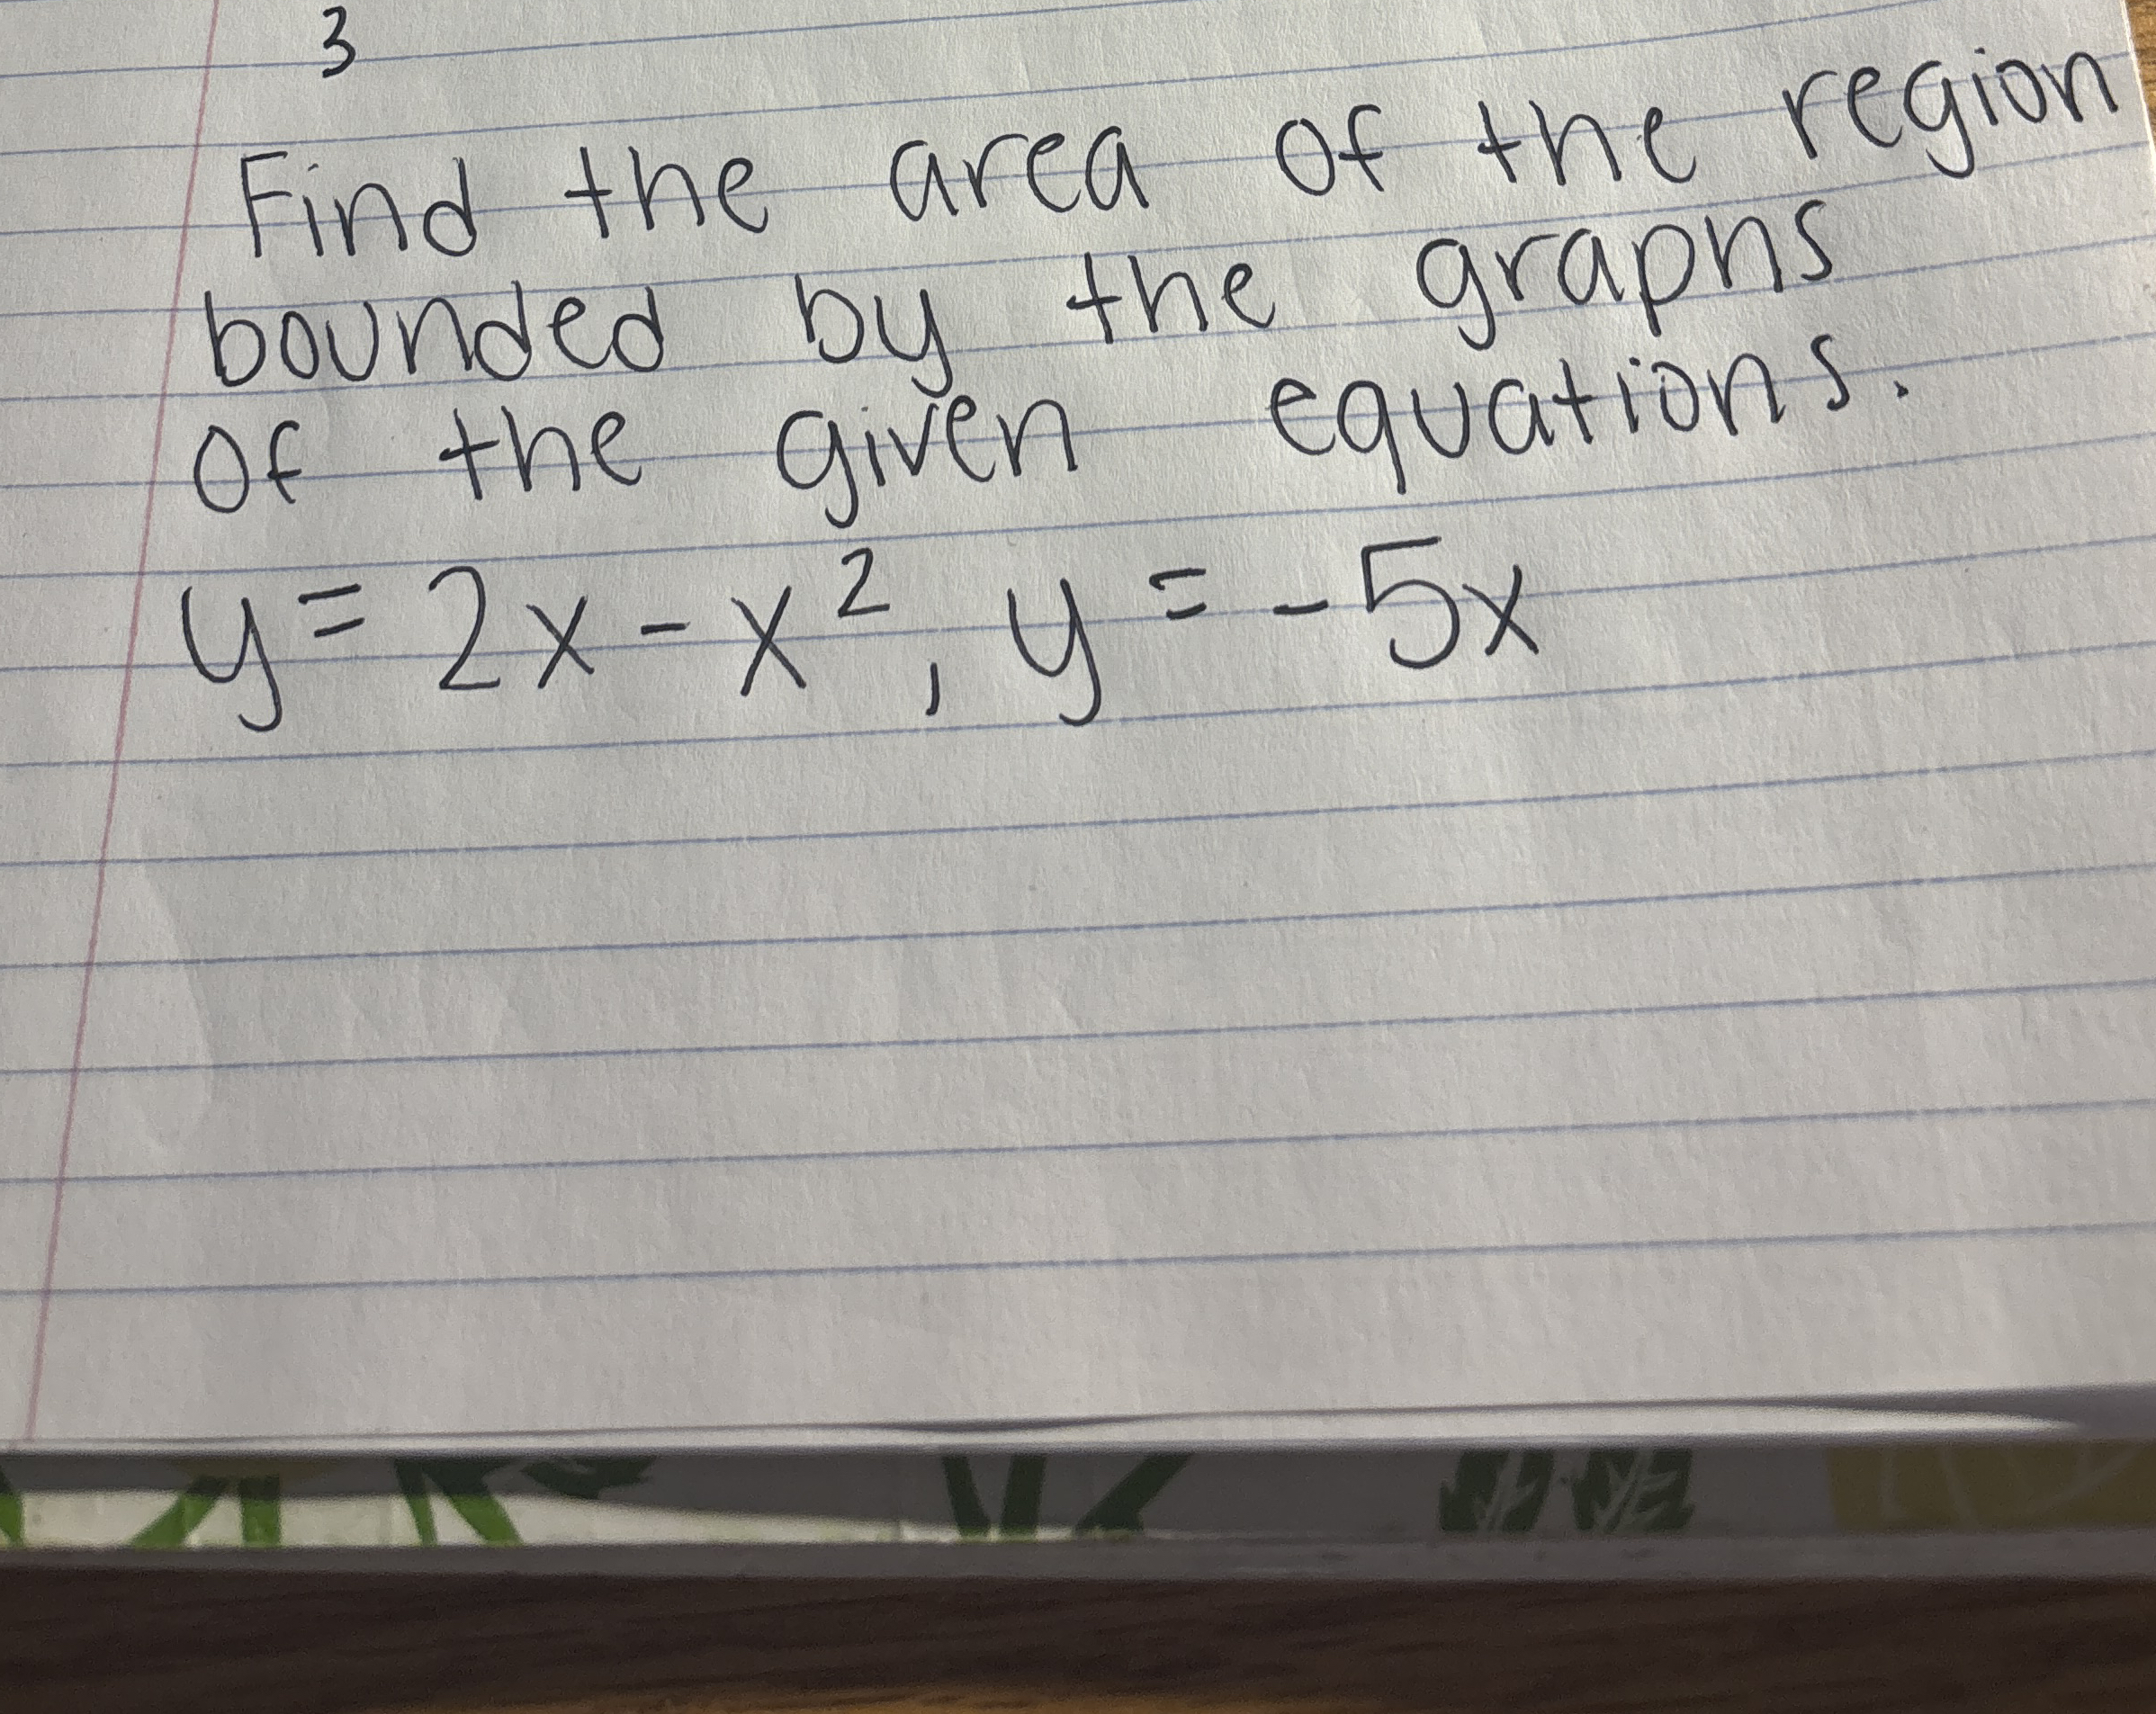 3
Find the area of the region
bounded by the graphs
of the given equations.
y = 2x - x², y = -5x